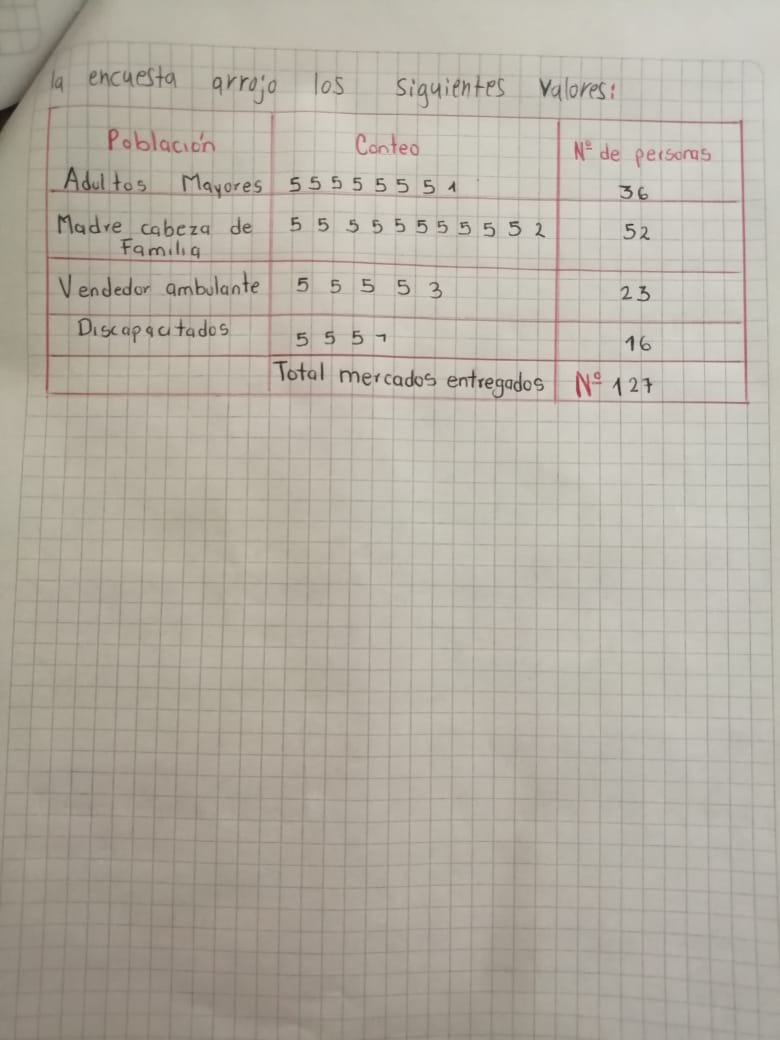 la encuesta arrojo los siguientes valores:
Población Conteo Nº de personas
Adultos Mayores 5 5 5 5 5 5 5 1 36
Madre cabeza de 5 5 5 5 5 5 5 5 5 5 2 52
Familia
Vendedor ambulante 5 5 5 5 3 23
Discapacitados 5 5 5 1 16
Total mercados entregados Nº 127